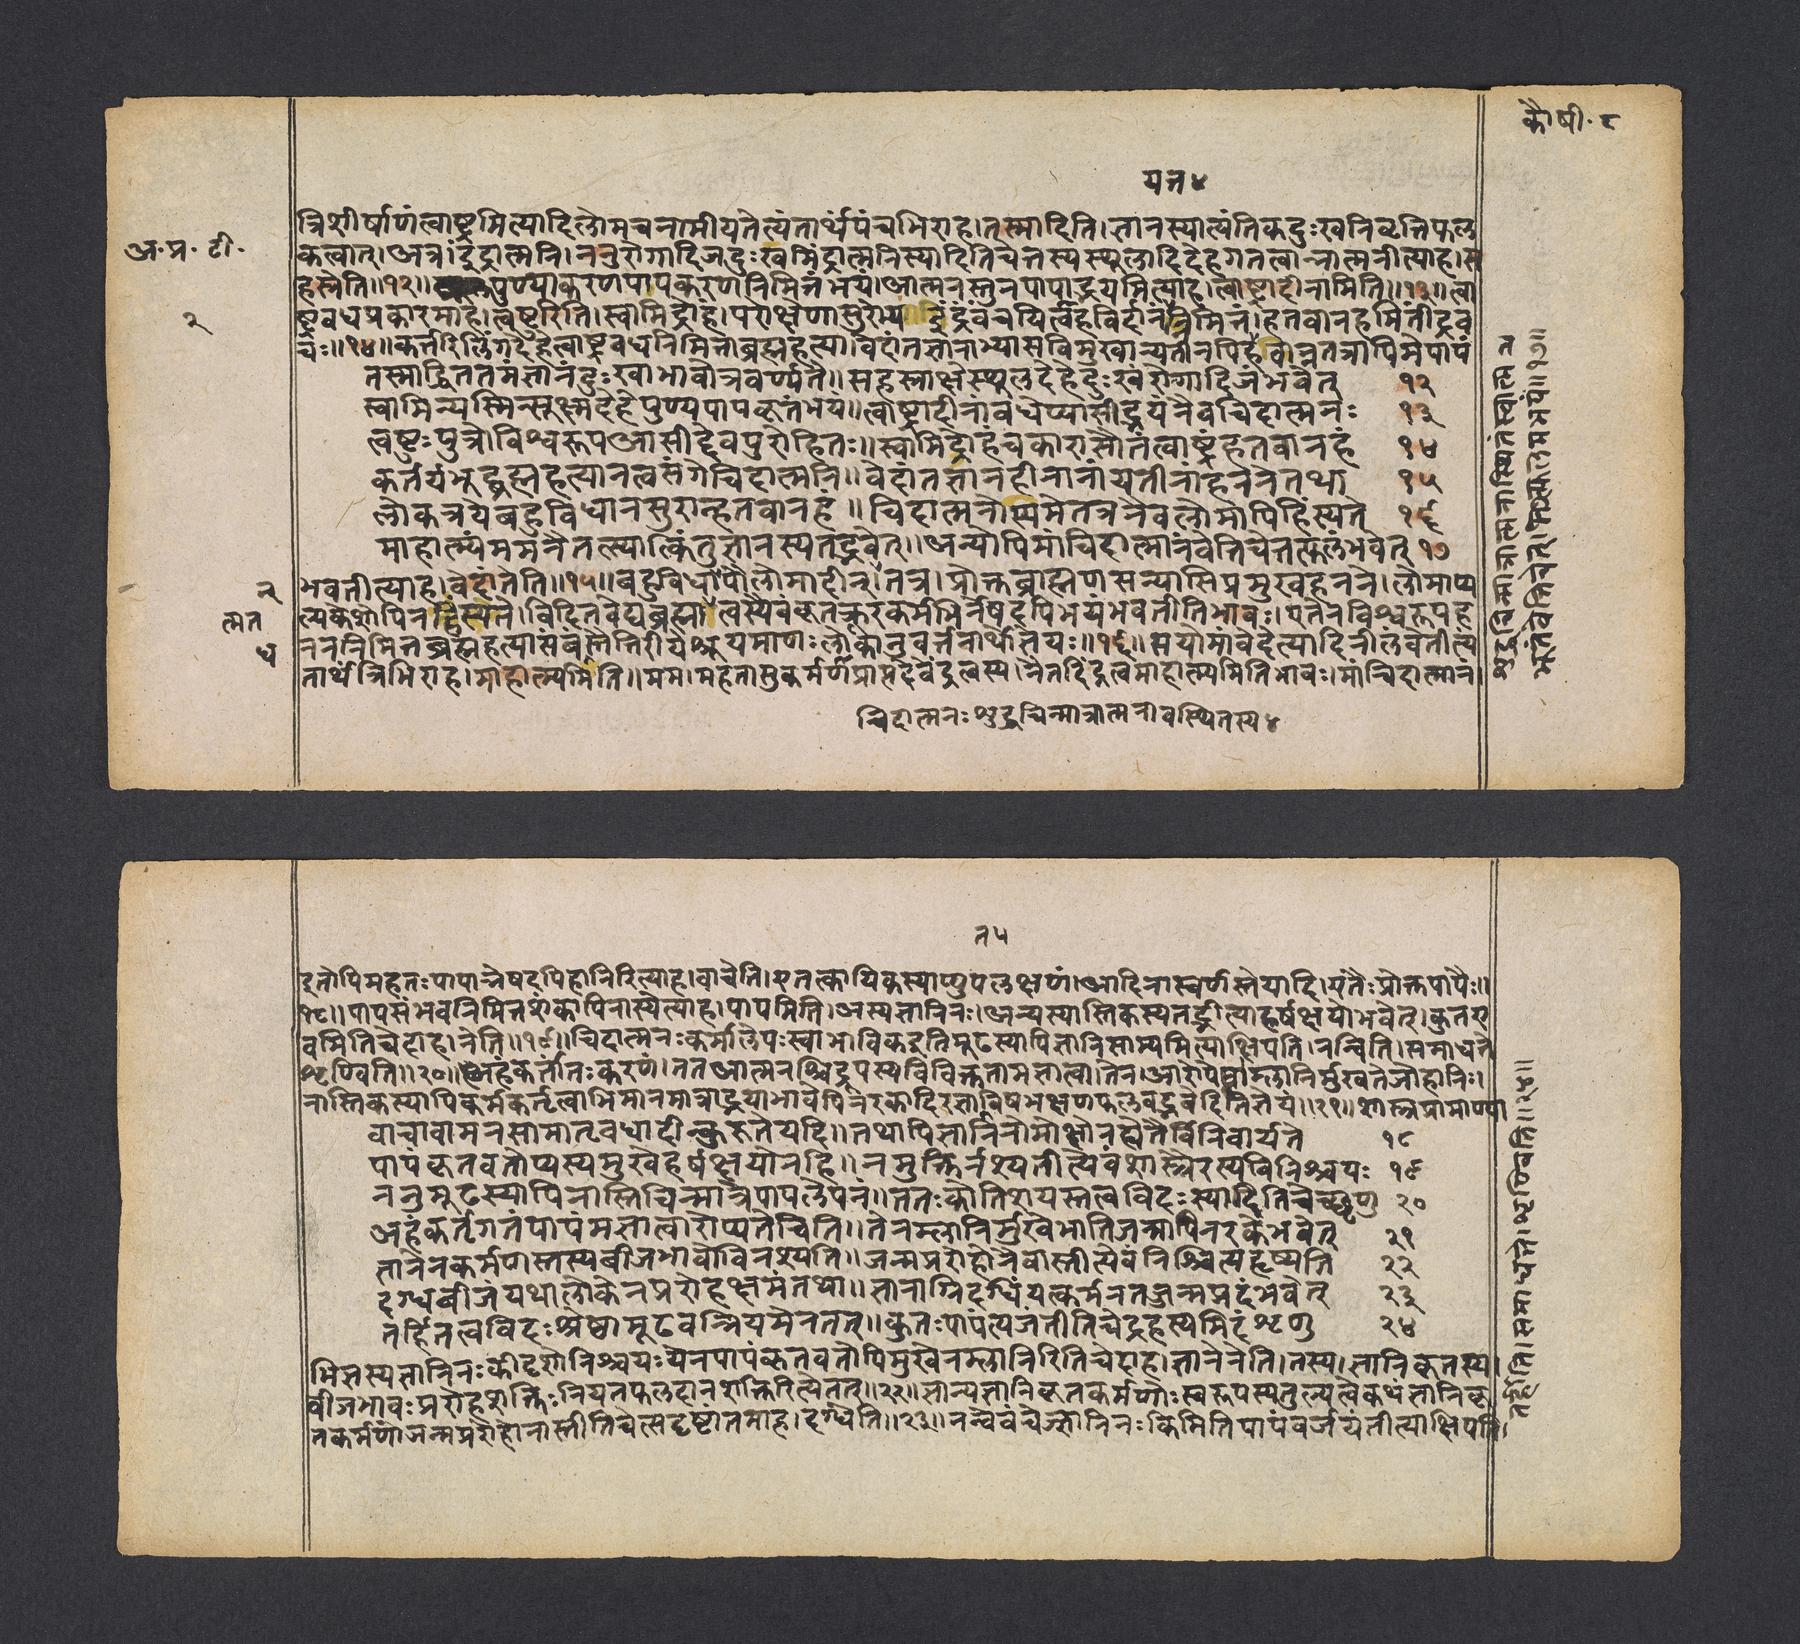 कौषी. ८
यन ४
अ. प्र. टी.
त्रिशीर्षाणंत्वाष्ट्रमित्यादिलोमचनामीयतेत्यंतार्थंपंचभिराह।तस्मादिति।ज्ञानस्यात्यंतिकदुःखनिवृत्तिफल
कत्वात्।अत्र।इंद्रात्मनि।ननुरोगादिजदुःखमिंद्रात्मनिस्यादितिचेन्नस्यस्थूलादिदेहगतत्वान्नात्मनीत्याह।स
हस्रेति॥१२॥पुण्याकरणपापकरणनिमित्तंभयं।आत्मनस्तुनपापाद्भयमित्याह।त्वाष्ट्रादीनामिति॥१३॥त्वा
२
ष्ट्रवधप्रकारमाह।त्वष्टुरिति।स्वामिद्रोहं।परोक्षेणासुरेभ्यो
चः॥१४॥कर्तरिलिंगदेहेत्वाष्ट्रवधनिमित्ताब्रह्महत्या।वेदांतज्ञानाभ्यासविमुखान्यतीनपि
तस्माद्धिततमंज्ञानंदुःखाभावोत्रवर्ण्यते॥सहस्राक्षेस्थूलदेहेदुःखंरोगादिजंभवेत् १२
स्वामिन्यस्मिन्सूक्ष्मदेहेपुण्यपापकृतंभयं॥त्वाष्ट्रादीनांवधेप्यासीद्भयंनैवचिदात्मनः १३
त्वष्टुःपुत्रोविश्वरूपआसीद्देवपुरोहितः॥स्वामिद्रोहंचकारासौतंत्वाष्ट्रंहतवानहं १४
कर्तर्यभूद्ब्रह्महत्यानत्वसंगेचिदात्मनि॥वेदांतज्ञानहीनानांयतीनांहननेतथा १५
लोकत्रयेबहुविधानसुरान्हतवानहं॥चिदात्मनोस्यमेतत्रनैवलोमापिहिंस्यते १६
माहात्म्यंममनैतत्स्यात्किंतुज्ञानस्यतद्भवेत्॥अन्योपिमांचिदात्मानंवेत्तिचेत्तत्फलंभवेत् १७
भवतीत्याह।वेदांतेति॥१५॥बहुविधान्पौलोमादीन्।तत्र।प्रोक्तब्राह्मणसन्यासिप्रमुखहनने।लोमाप्य
त्मत
ध
ननिमित्तब्रह्महत्यासंबंधस्तैत्तिरीयेश्रूयमाणःलोकानुवर्तनार्थोज्ञेयः॥१६॥सयोमांवेदेत्यादिनीलंवेतीत्यं
तार्थंत्रिभिराह।माहात्म्यमिति॥मम।महतासुकर्मणाप्राप्तदेवेंदुत्वस्य।नैतदिंद्रत्वमाहात्म्यमितिभावः।मांचिदात्मानं।
चिदात्मनःशुद्धचिन्मात्रात्मनावस्थितस्य ४
न ५
दृतोपिमहतःपापान्नेषदपिहानिरित्याह।वाचेति।एतत्कायिकस्याप्युपलक्षणं।आदिनास्वर्णस्तेयादि।एतैःप्रोक्तपापैः॥
१८॥पापसंभवनिमित्तशंकापिनास्येत्याह।पापमिति।अस्यज्ञानिनः।अन्यस्यास्तिकस्यतद्भीत्याहर्षक्षयोभवेत्।कुतए
वमितिचेदाह।नेति॥१९॥चिदात्मनःकर्मालेपःस्वाभाविकइतिमूढस्यापिज्ञानिसाम्यमित्याक्षिपति।नन्विति।समाधत्ते
शृण्विति॥२०॥अहंकर्तांतःकरणं।ततआत्मनश्चिद्रूपस्यविविक्ततामज्ञात्वा।तेन।आरोपेणम्लानिर्मुखतेजोहानिः।
नास्तिकस्यापिकर्मकर्तृत्वाभिमानमात्राद्भयाभावेपिनरकादिरज्ञातविषभक्षणफलवद्भवेदितिज्ञेयं॥२१॥शास्त्रप्रामाण्या
वाचावामनसामातृवधादीन्कुरुतेयदि॥तथापिज्ञानिनोमोक्षोनह्येतैर्विनिवार्यते १८
पापंकृतवतोप्यस्यमुखेहर्षक्षयोनहि॥नमुक्तिर्नश्यतीत्येवंशास्त्रैरस्यविनिश्चयः १९
ननुमूढस्यापिनास्तिचिन्मात्रेपापलेपनं॥ततःकोतिशयस्तत्वविदःस्यादितिचेच्छृणु २०
अहंकर्तृगतंपापंमज्ञात्वारोप्यतेचिति॥तेनम्लानिर्मुखेभातिजन्मापिनरकेभवेत् २१
ज्ञानेनकर्मणास्तस्यबीजभावोविनश्यति॥जन्मप्ररोहोनैवास्तीत्येवंनिश्चित्यहृष्यति २२
दग्धबीजंयथालोकेनप्ररोहक्षमंतथा॥ज्ञानाग्निदग्धंयत्कर्मनतज्जन्मप्रदंभवेत् २३
तर्हितत्वविदःश्रेष्ठामूढवन्नियमेनतत्॥कुतःपापंत्यजंतीतिचेद्रहस्यमिदंशृणु २४
भिज्ञस्यज्ञानिनःकीदृशोनिश्चयःयेनपापंकृतवतोपिमुखेनम्लानिरितिचेदाह।ज्ञानेनेति।तस्य।ज्ञानिकृतस्य।
बीजभावःप्ररोहशक्तिःनियतफलदानशक्तिरित्येतत्॥२२॥नान्यज्ञानिकृतकर्मणोःस्वरूपस्यतुल्यत्वेकथंज्ञानिकृ
तकर्मणांजन्मप्ररोहोनास्तीतिचेत्सदृष्टांतमाह।दग्धेति॥२३॥नन्वेवंचेज्ज्ञानिनःकिमितिपापंवर्जयंतीत्याक्षिपति।